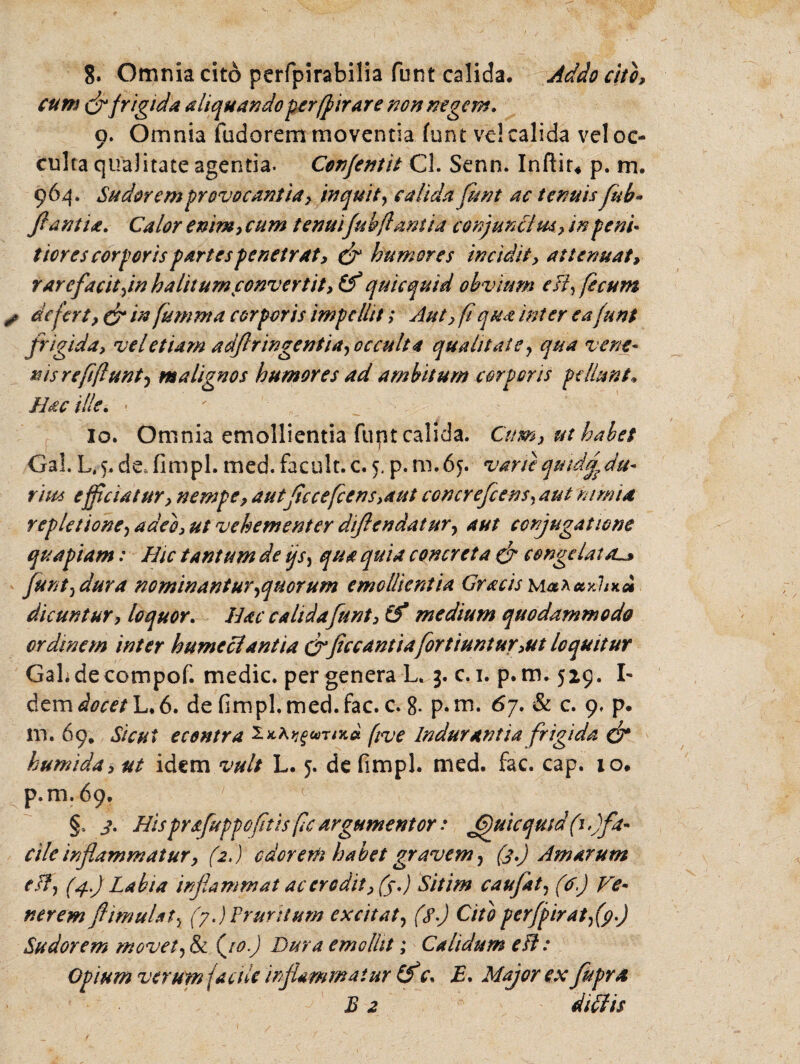 8. Omnia citò perſpirabilia ſunt calida. Addo citò,
cum & frigida aliquando perſpirare non negem.
9. Omnia ſudorem moventia ſunt vel calida vel oc-
culta qualitate agentia. Conſentit Cl. Senn. Inſtit. p. m.
964. Sudorem provocantia, inquit, calida ſunt ac tenuis ſub-
ſtantiæ. Calor enim, cum tenui ſubſtantia conjunctus, in peni-
tiores corporis partes penetrat, & humores incidit, attenuat,
rarefacit, in halitum convertit, & quicquid obvium eſt, ſecum
defert, & in ſumma corporis impellit; Aut, ſi quæ inter ea ſunt
frigida, vel etiam adſtringentia, occulta qualitate, qua vene-
nis reſiſtunt, malignos humores ad ambitum corporis pellunt.
Hæc ille.
10. Omnia emollientia ſunt calida. Cum, ut habet
Gal. L. 5. de ſimpl. med. facult. c. 5. p. m. 65. varie quidq; du-
rius efficiatur, nempe, aut ſicceſcens, aut concreſcens, aut nimia
repletione, adeò, ut vehementer diſtendatur, aut conjugatione
quapiam: Hic tantum de ijs, quæ quia concreta & congelata
ſunt, dura nominantur, quorum emollientia Græcis Μαλακτικὰ
dicuntur, loquor. Hæc calida ſunt, & medium quodammodo
ordinem inter humectantia & ſiccantia ſortiuntur, ut loquitur
Gal. de compoſ. medic. per genera L. 3. c. 1. p. m. 529. I-
dem docet L. 6. de ſimpl. med. fac. c. 8. p. m. 67. & c. 9. p.
m. 69. Sicut econtra Σκληρωτικὰ ſive Indurantia frigida &
humida, ut idem vult L. 5. de ſimpl. med. fac. cap. 10.
p. m. 69.
§. 3. His præſuppoſitis ſic argumentor: Quicquid (1.) fa-
cile inflammatur, (2.) odorem habet gravem, (3.) Amarum
eſt, (4.) Labia inflammat ac erodit, (5.) Sitim cauſat, (6.) Ve-
nerem ſtimulat, (7.) Pruritum excitat, (8.) Citò perſpirat, (9.)
Sudorem movet, & (10.) Dura emollit; Calidum eſt:
Opium verum facile inflammatur &c. E. Major ex ſupra
B 2 dictis